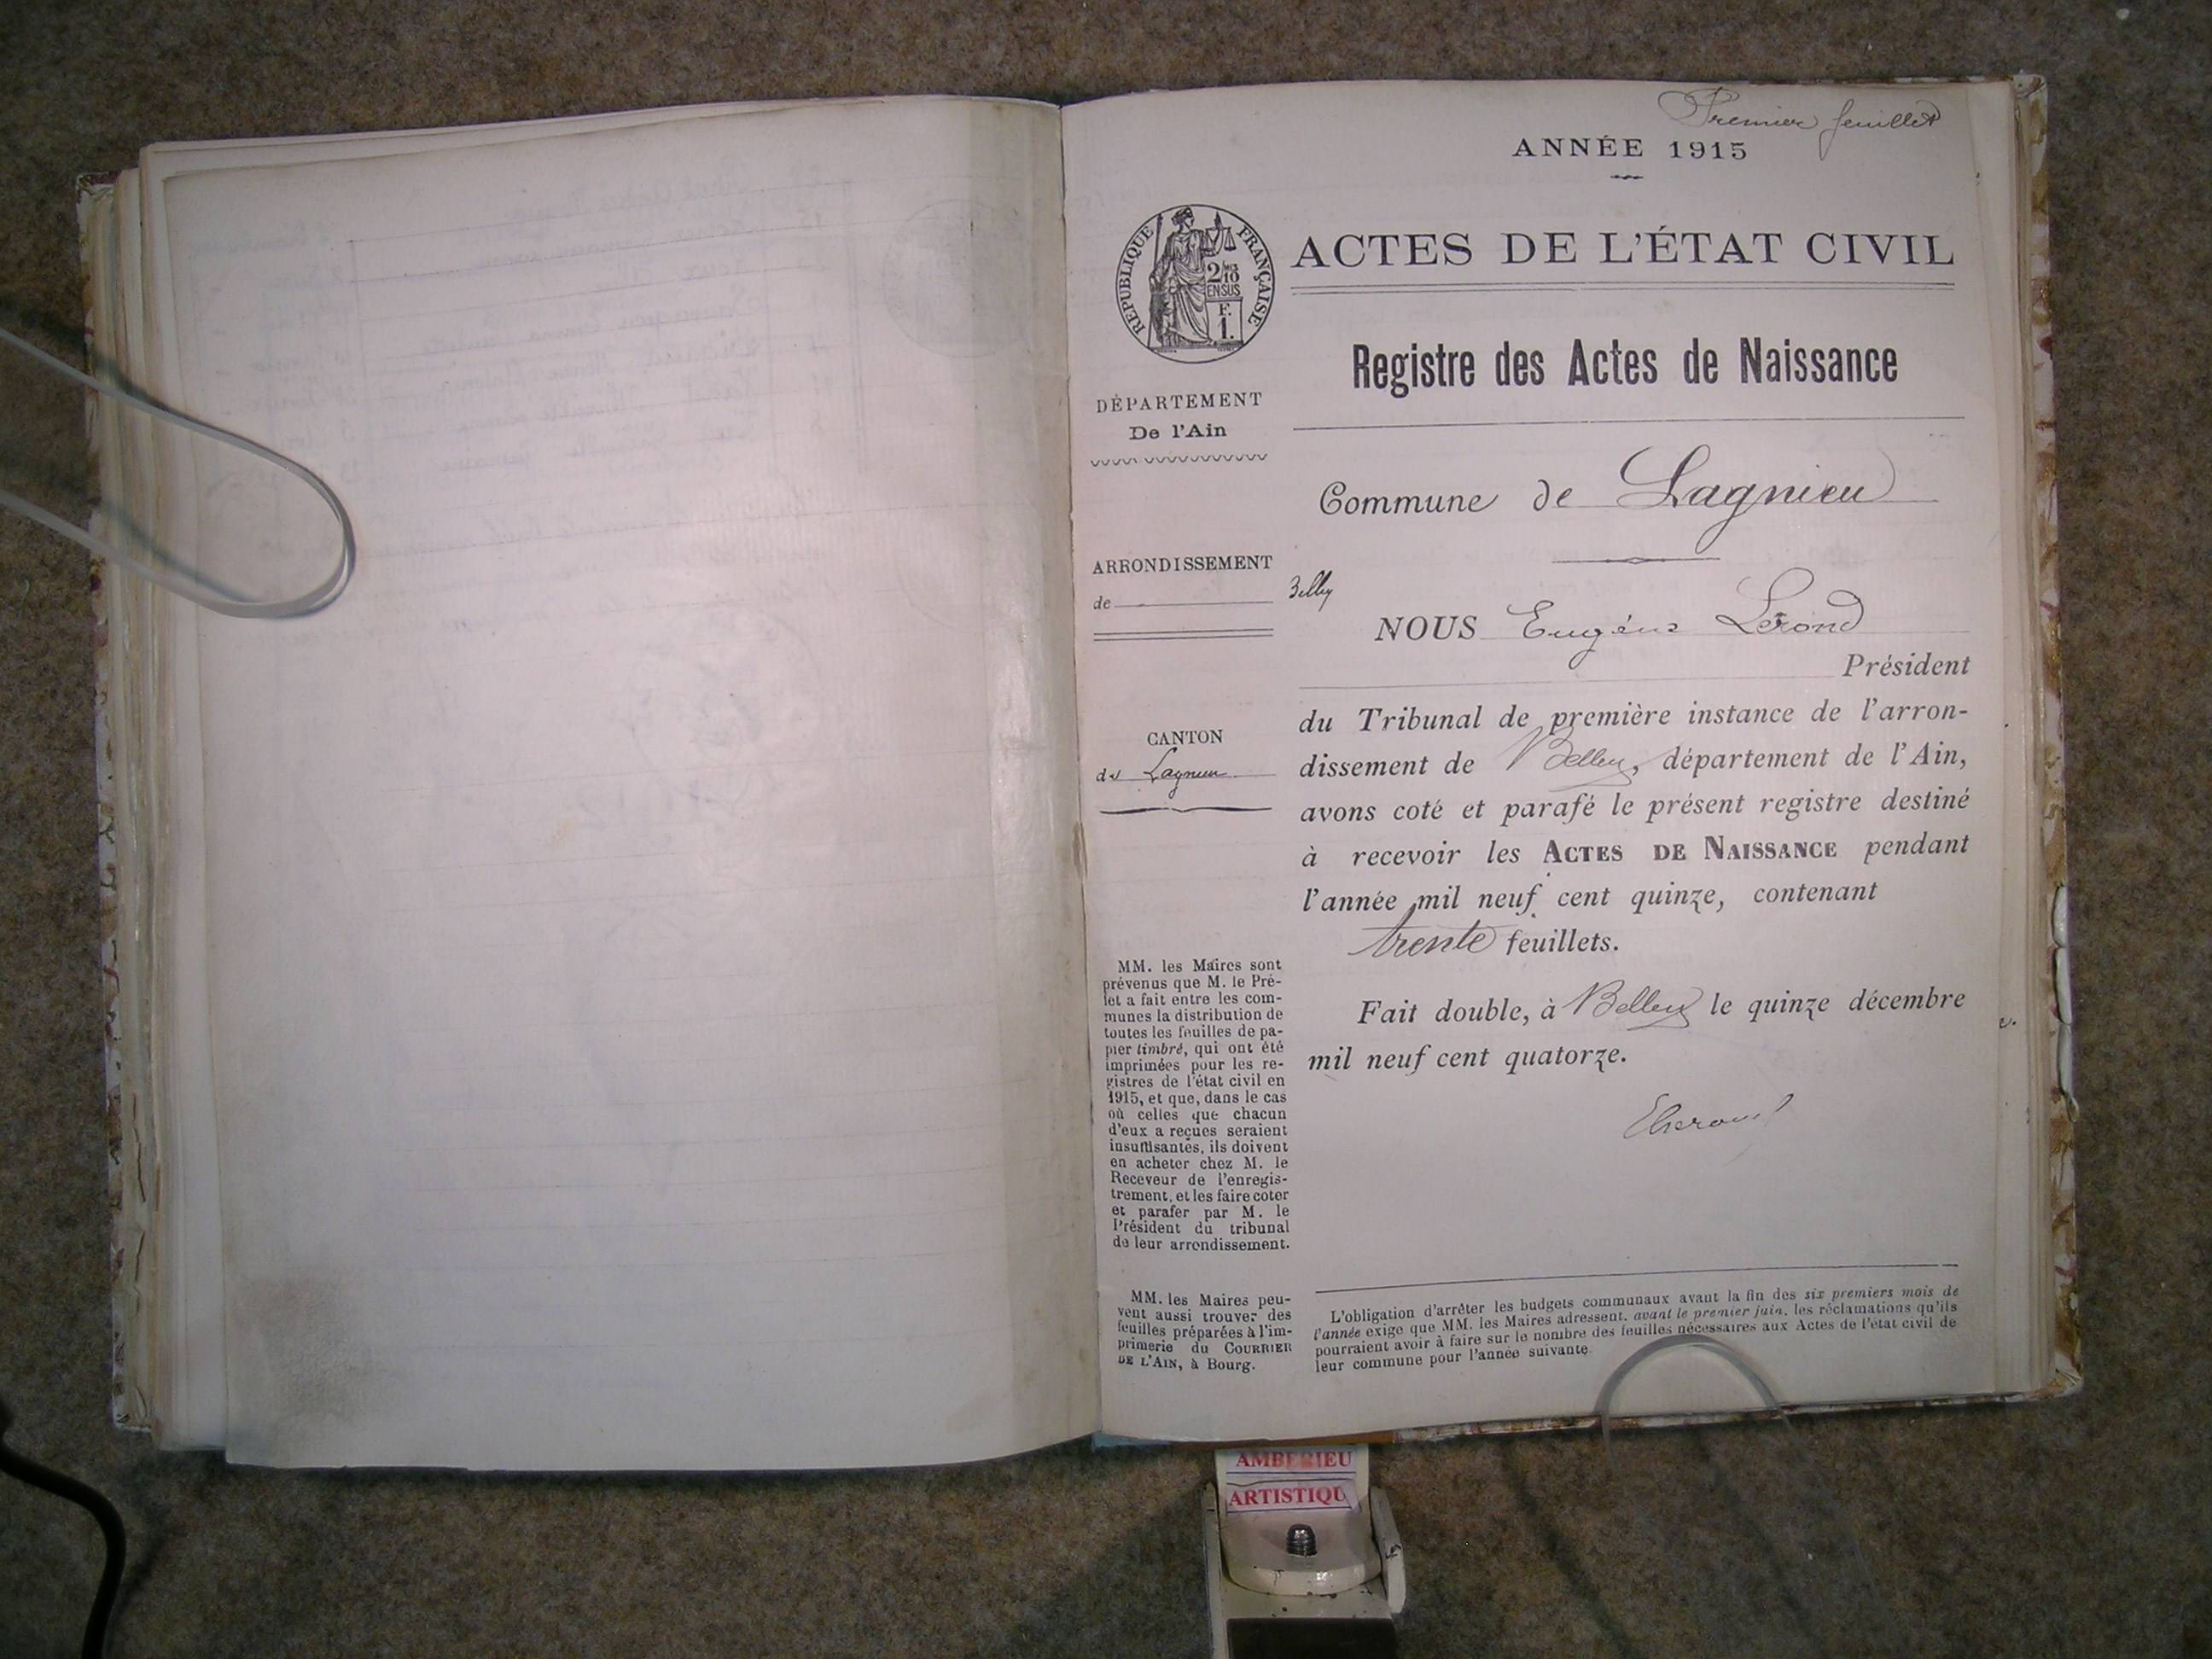 Premier feuillet
ANNÉE 1915
RÉPUBLIQUE FRANÇAISE
2/10
EN SUS
F.
1.
ACTES DE L'ÉTAT CIVIL
Registre des Actes de Naissance
DÉPARTEMENT
De l'Ain
Commune de Lagnieu
ARRONDISSEMENT
de Belley
NOUS Eugène Lerond
Président
CANTON
de Lagnieu
du Tribunal de première instance de l'arron-
dissement de Belley, département de l'Ain,
avons coté et parafé le présent registre destiné
à recevoir les ACTES DE NAISSANCE pendant
l'année mil neuf cent quinze, contenant
trente feuillets.
Fait double, à Belley le quinze décembre
mil neuf cent quatorze.
MM. les Maires sont
prévenus que M. le Pré-
fet a fait entre les com-
munes la distribution de
toutes les feuilles de pa-
pier timbré, qui ont été
imprimées pour les re-
gistres de l'état civil en
1915, et que, dans le cas
où celles que chacun
d'eux a reçues seraient
insuffisantes, ils doivent
en acheter chez M. le
Receveur de l'enregis-
trement, et les faire coter
et parafer par M. le
Président du tribunal
de leur arrondissement.
MM. les Maires peu-
vent aussi trouver des
feuilles préparées à l'im-
primerie du COURRIER
DE L'AIN, à Bourg.
L'obligation d'arrêter les budgets communaux avant la fin des six premiers mois de
l'année exige que MM. les Maires adressent, avant le premier juin, les réclamations qu'ils
pourraient avoir à faire sur le nombre des feuilles nécessaires aux Actes de l'état civil de
leur commune pour l'année suivante.
AMBERIEU
ARTISTIQU